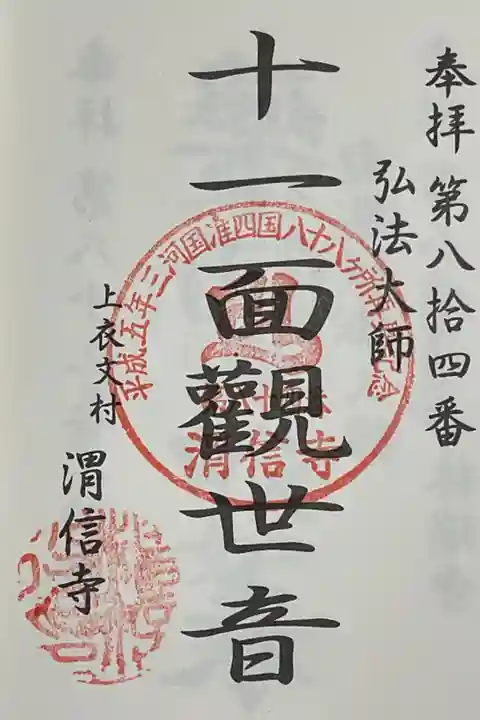 奉拝第八拾四番
弘法大師
十一面觀世音
平成五年三河国准四国八十八ヶ所
渭信寺
上衣文村
渭信寺